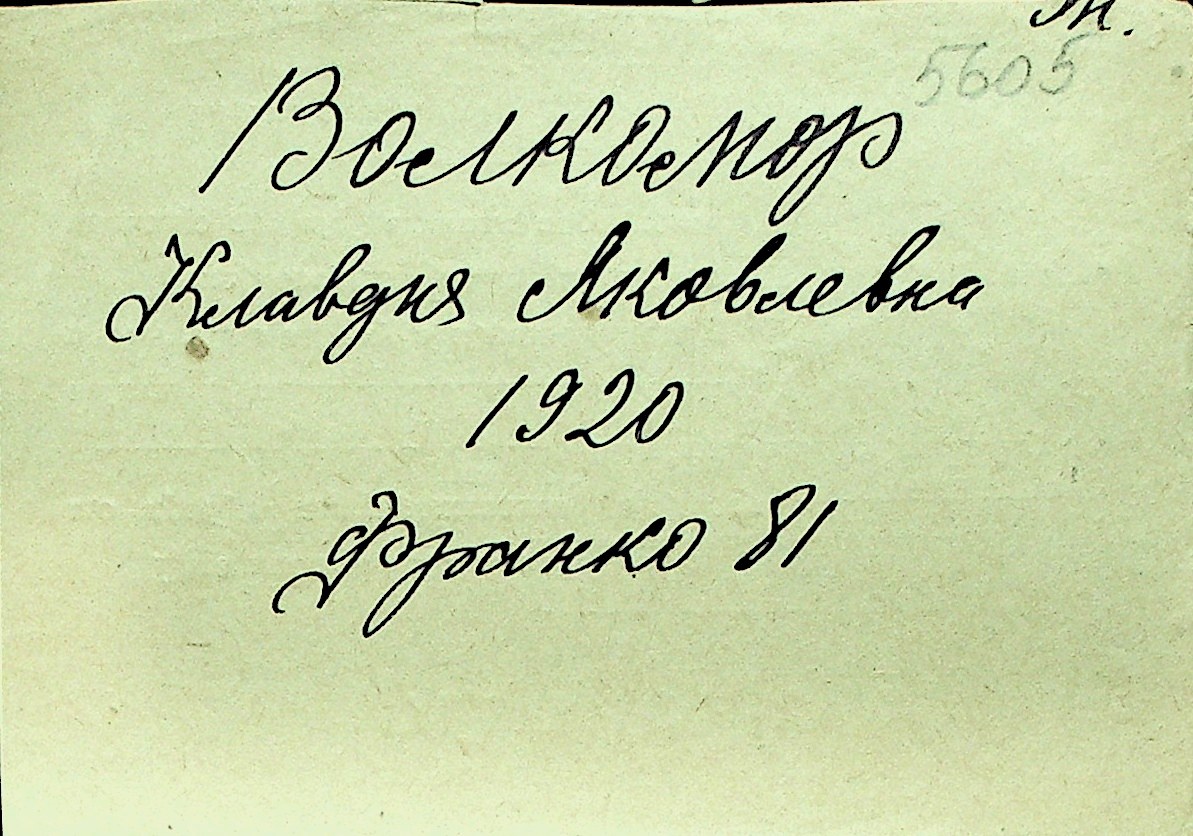 5605
Волкомор
Клавдия Яковлевна
1920
Франко 81